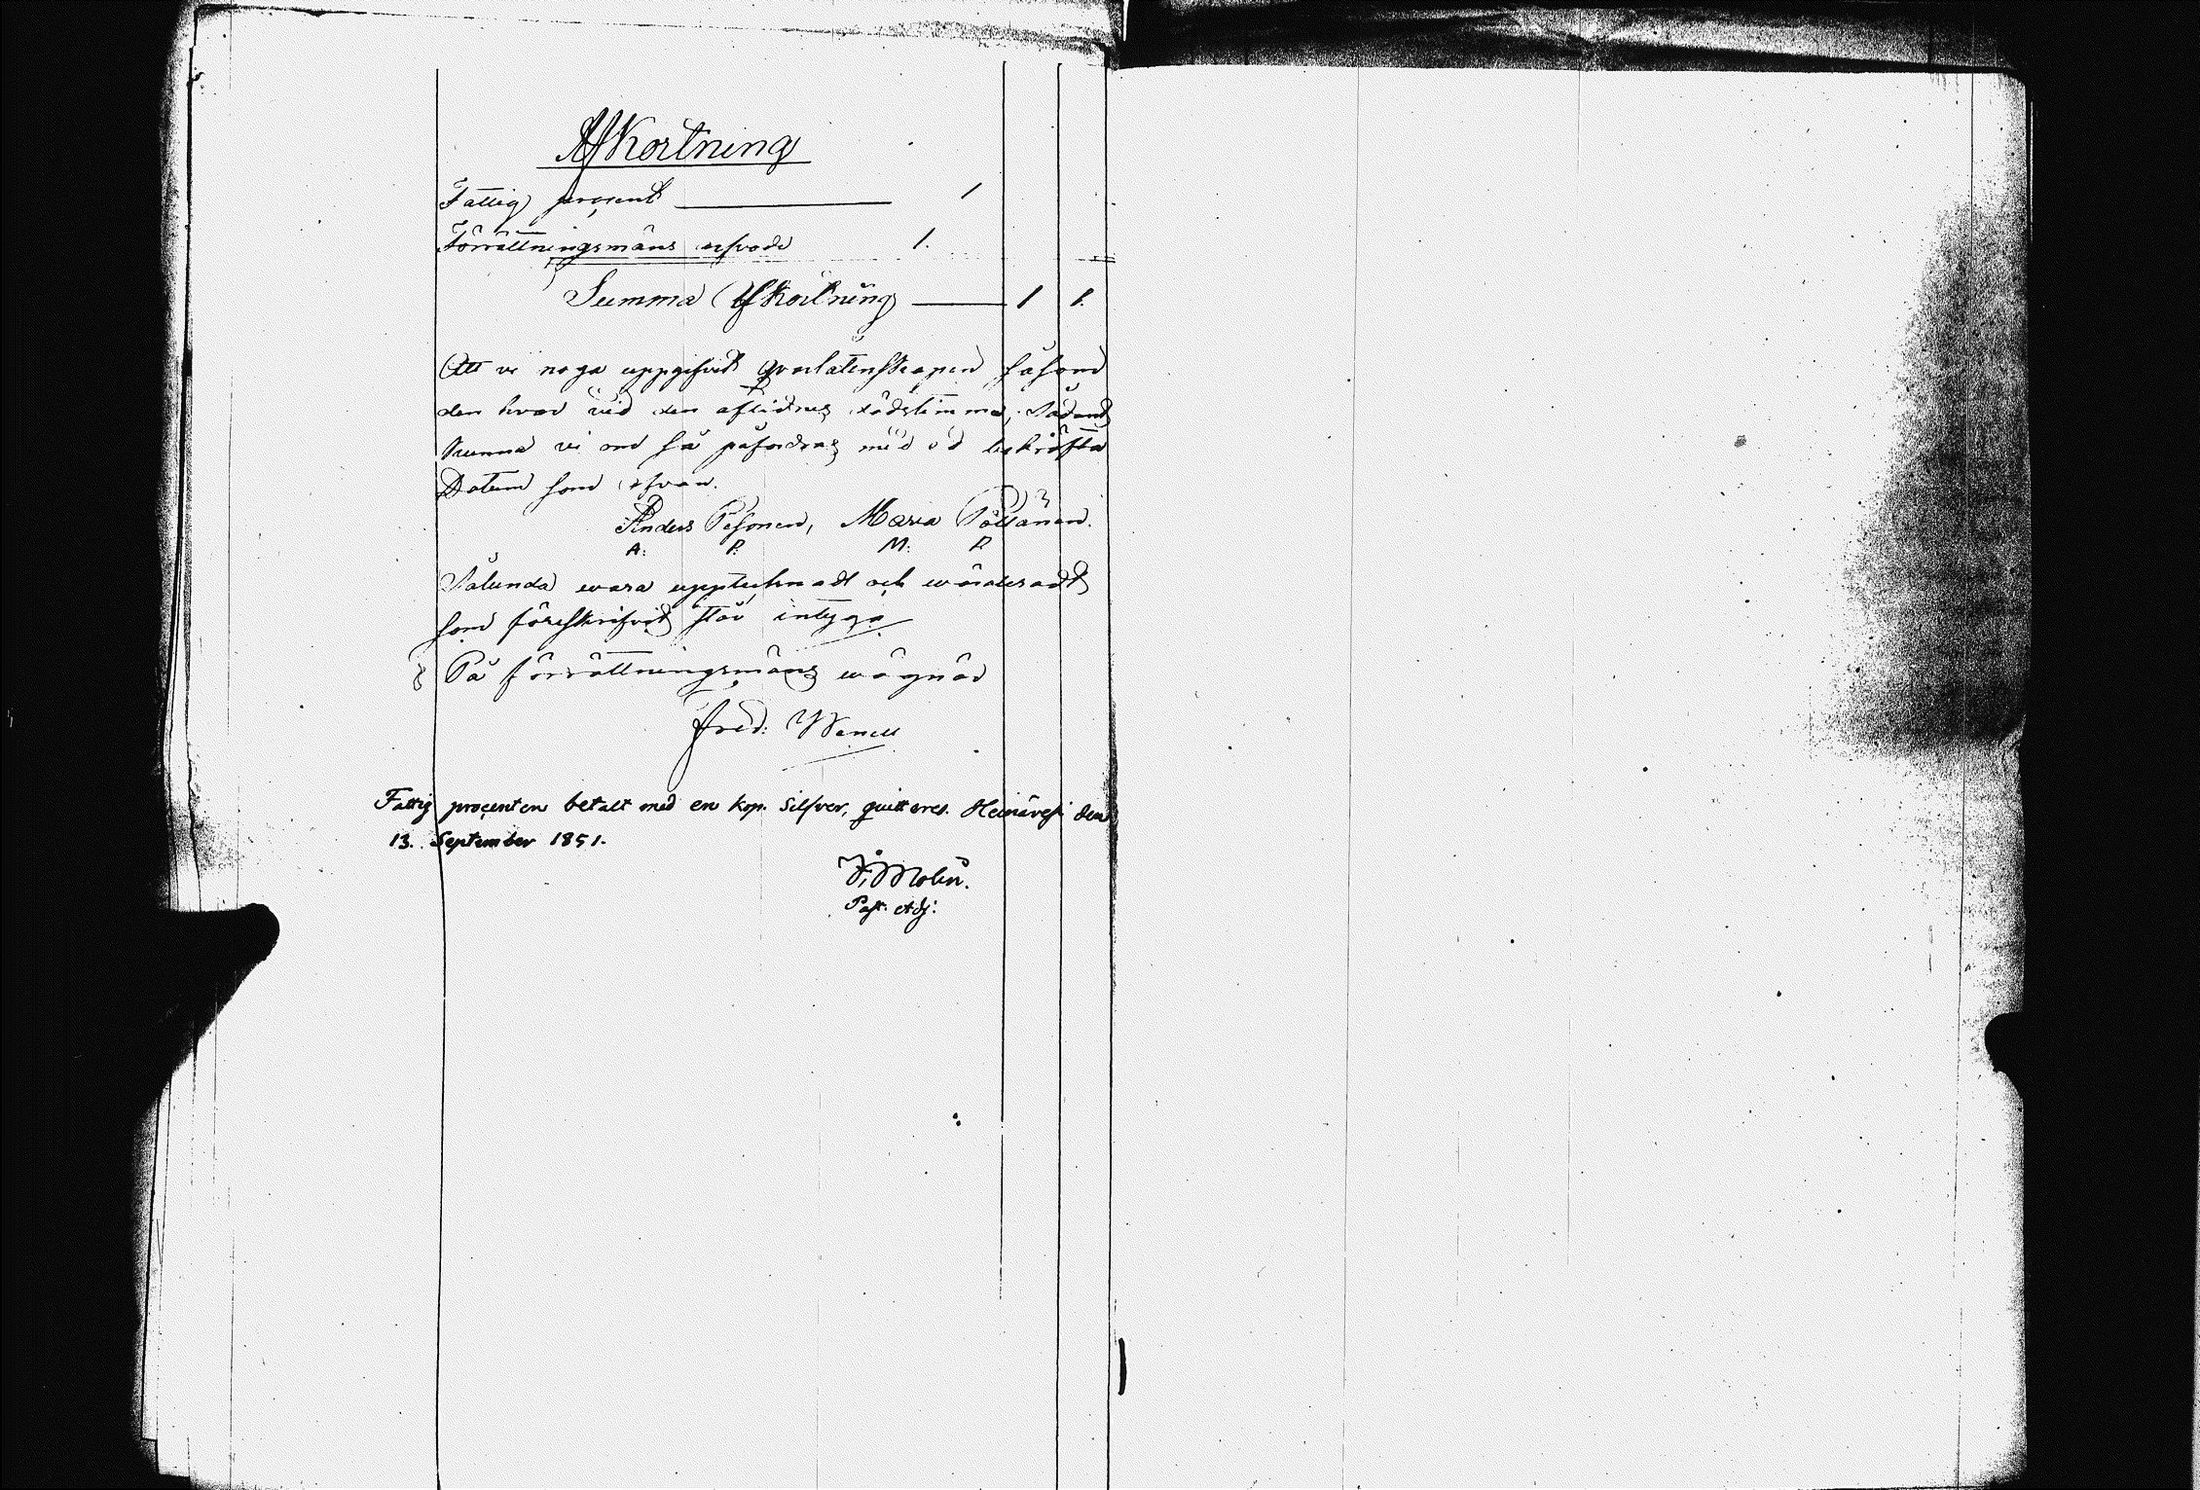 Afkortning
Fattig procent 1
Förrättningsmäns arfvode 1.
Summa Afkortning 1 1.
Att vi noga uppgifvit qvarlåtenskapen såsom
den hvar vid den aflidnes dödstimma, sådant
kunna vi om så påfordras med ed bekräfta
Datum som ofvan.
Anders Pesonen, Maria Pöllänen.
A: P: M: P.
Sålunda wara upptecknadt och wärderadt
som föreskrifvit står intyga
På förrättningsmäns wägnar
Fred: Wenell
Fattig procenten betalt med en kop. Silfver, quitteres. Heinävesi den
13. September 1851.
Molin.
Past. Adj: